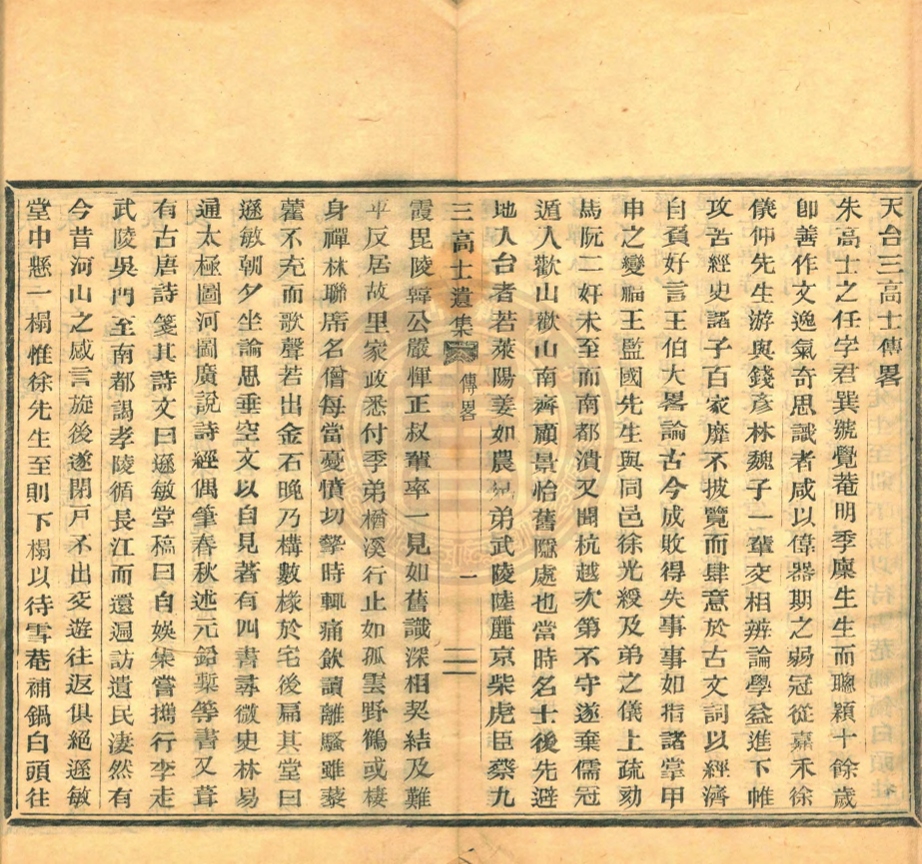 天台三高士傳畧
朱高士之任字君巽號覺菴明季廩生生而聰穎十餘歲
卽善作文逸氣奇思識者咸以偉器期之弱冠從嘉禾徐
儀仰先生游與錢彥林魏子一輩交相辨論學益進下帷
攻苦經史諸子百家靡不披覽而肆意於古文詞以經濟
自負好言王伯大畧論古今成敗得失事事如指諸掌甲
申之變福王監國先生與同邑徐光綬及弟之儀上疏劾
馬阮二奸未至而南都潰又聞杭越次第不守遂棄儒冠
遁入歡山歡山南齊顧景怡舊隱處也當時名士後先避
地入台者若萊陽姜如農兄弟武陵陸麗京柴虎臣蔡九
三高士遺集 傳畧 一
霞毘陵韓公嚴惲正叔輩率一見如舊識深相契結及難
平反居故里家政悉付季弟楢溪行止如孤雲野鶴或棲
身禪林聯席名僧每當憂憤切摯時輒痛飲讀離騷雖藜
藿不充而歌聲若出金石晚乃構數椽於宅後扁其堂曰
遜敏朝夕坐論思垂空文以自見著有四書尋微史林易
通太極圖河圖廣說詩經偶筆春秋述元鉛槧等書又葺
有古唐詩箋其詩文曰遜敏堂稿曰自娛集嘗攜行李走
武陵吳門至南都謁孝陵循長江而還遍訪遺民淒然有
今昔河山之感言旋後遂閉戸不出交遊往返俱絕遜敏
堂中懸一榻惟徐先生至則下榻以待雪菴補鍋白頭往